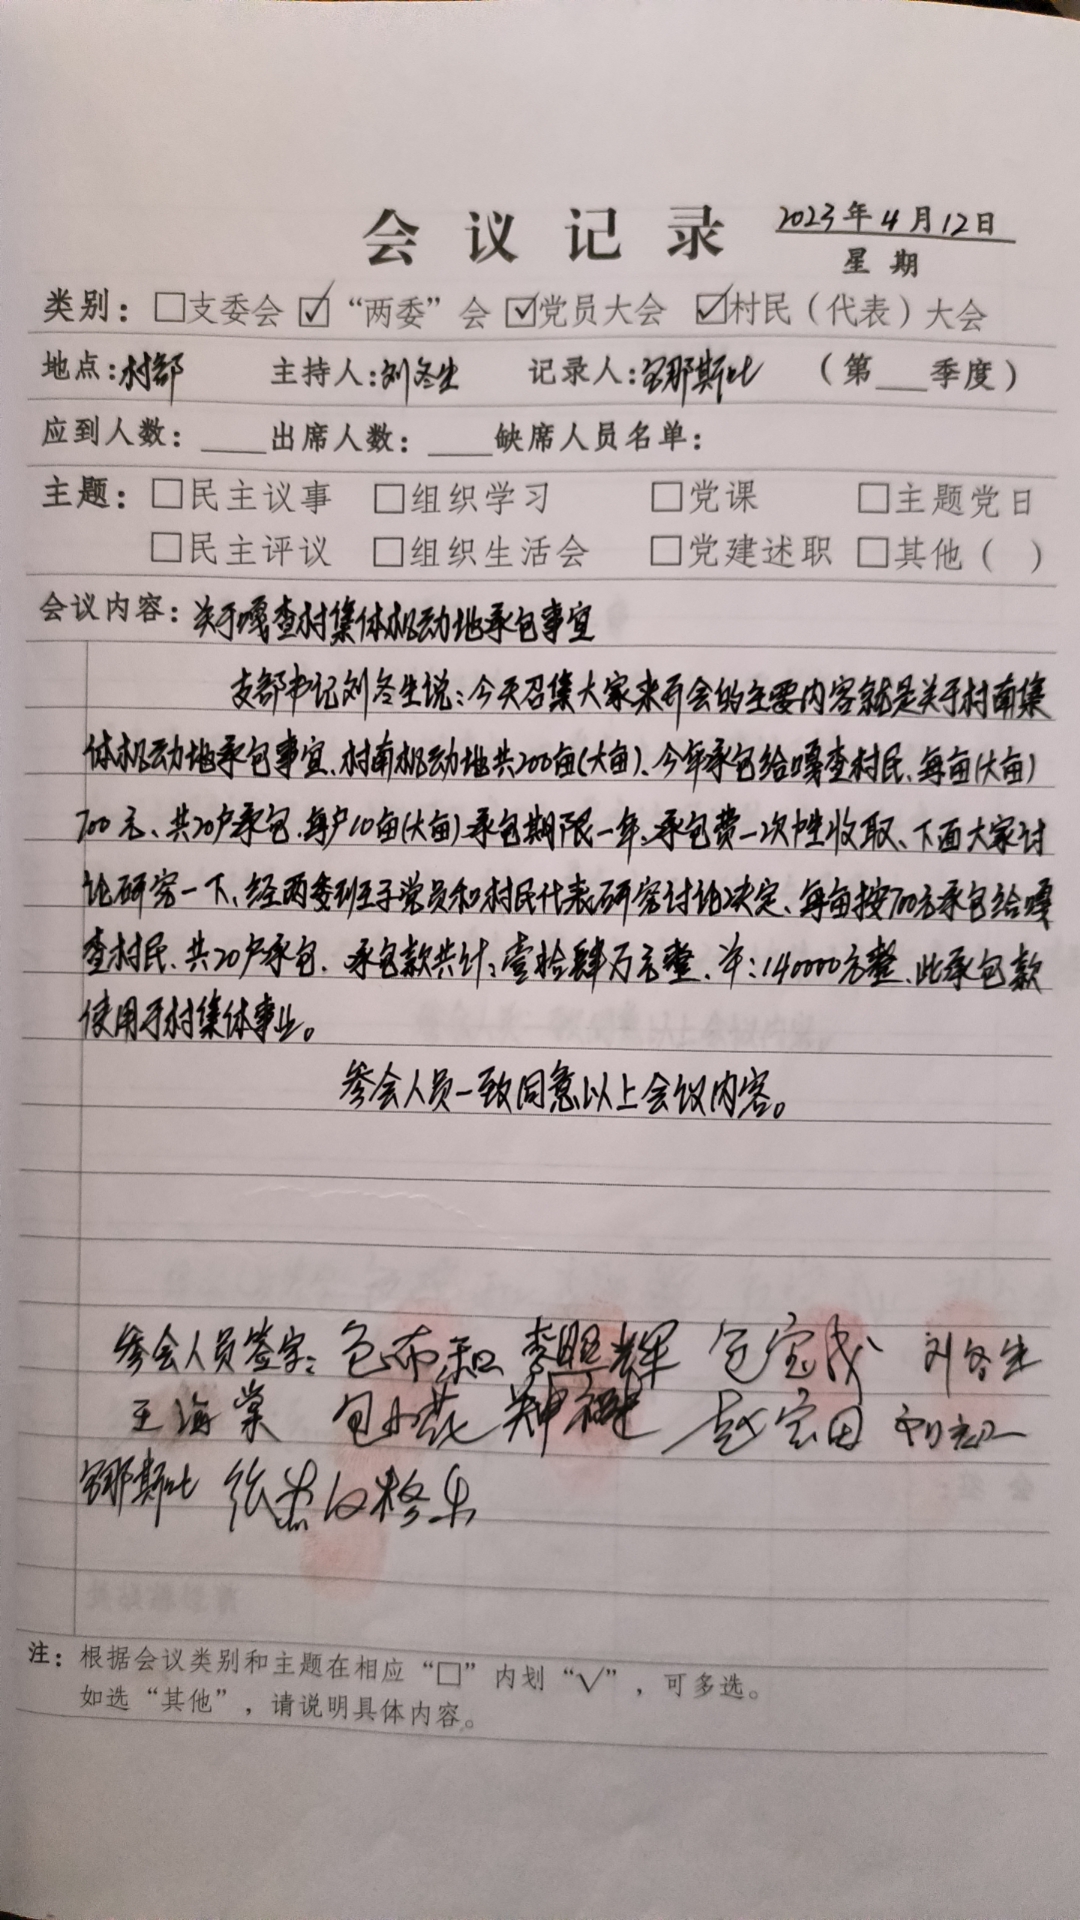 会议记录 2023年4月12日
星期
类别：□支委会 ☑“两委”会 ☑党员大会 ☑村民（代表）大会
地点：村部 主持人：刘冬生 记录人：那斯 （第___季度）
应到人数：____出席人数：____缺席人员名单：
主题：□民主议事 □组织学习 □党课 □主题党日
□民主评议 □组织生活会 □党建述职 □其他（ ）
会议内容：关于嘎查村集体机动地承包事宜
支部书记刘冬生说：今天召集大家来开会的主要内容就是关于村南集
体机动地承包事宜、村南机动地共200亩(大亩)、今年承包给嘎查村民、每亩(大亩)
700元、共20户承包、每户10亩(大亩)承包期限一年、承包费一次性收取、下面大家讨
论研究一下、经两委班子党员和村民代表研究讨论决定、每亩按700元承包给嘎
查村民、共20户承包、承包款共计：壹拾肆万元整、￥：140000元整、此承包款
使用于村集体事业。
参会人员一致同意以上会议内容。
参会人员签字：包布和 李昭辉 包宝成 刘冬生
王海棠 包小花 郑福建 赵宏田
那斯 张杰 格乐
注：根据会议类别和主题在相应“□”内划“√”，可多选。
如选“其他”，请说明具体内容。